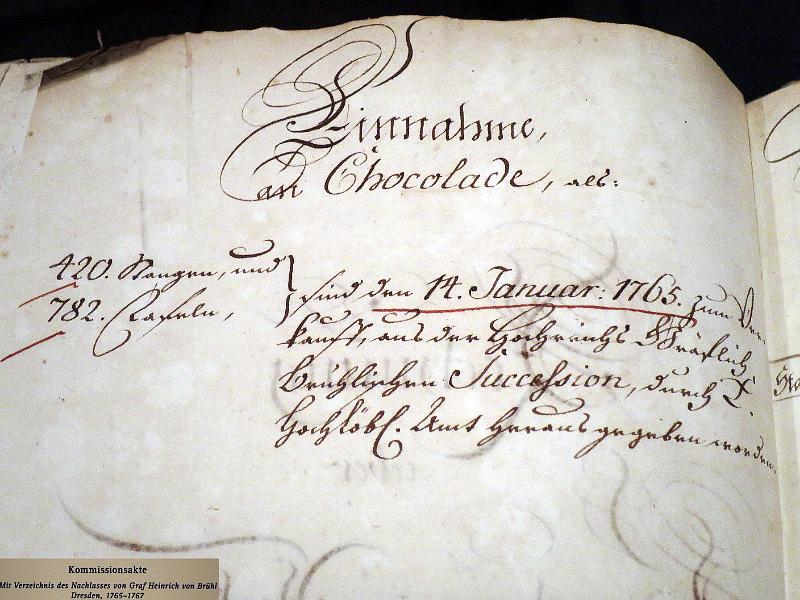 Einnahme,
an Chocolade, als:
420. Stangen, und
782. Tafeln,
sind den 14. Januar: 1765. zum Ver-
kauff, aus der Hochreichs Gräflich
Brühlischen Succession, durch E.
Hochlöbl. Amt herausgegeben worden.
Kommissionsakte
Mit Verzeichnis des Nachlasses von Graf Heinrich von Brühl
Dresden, 1765–1767